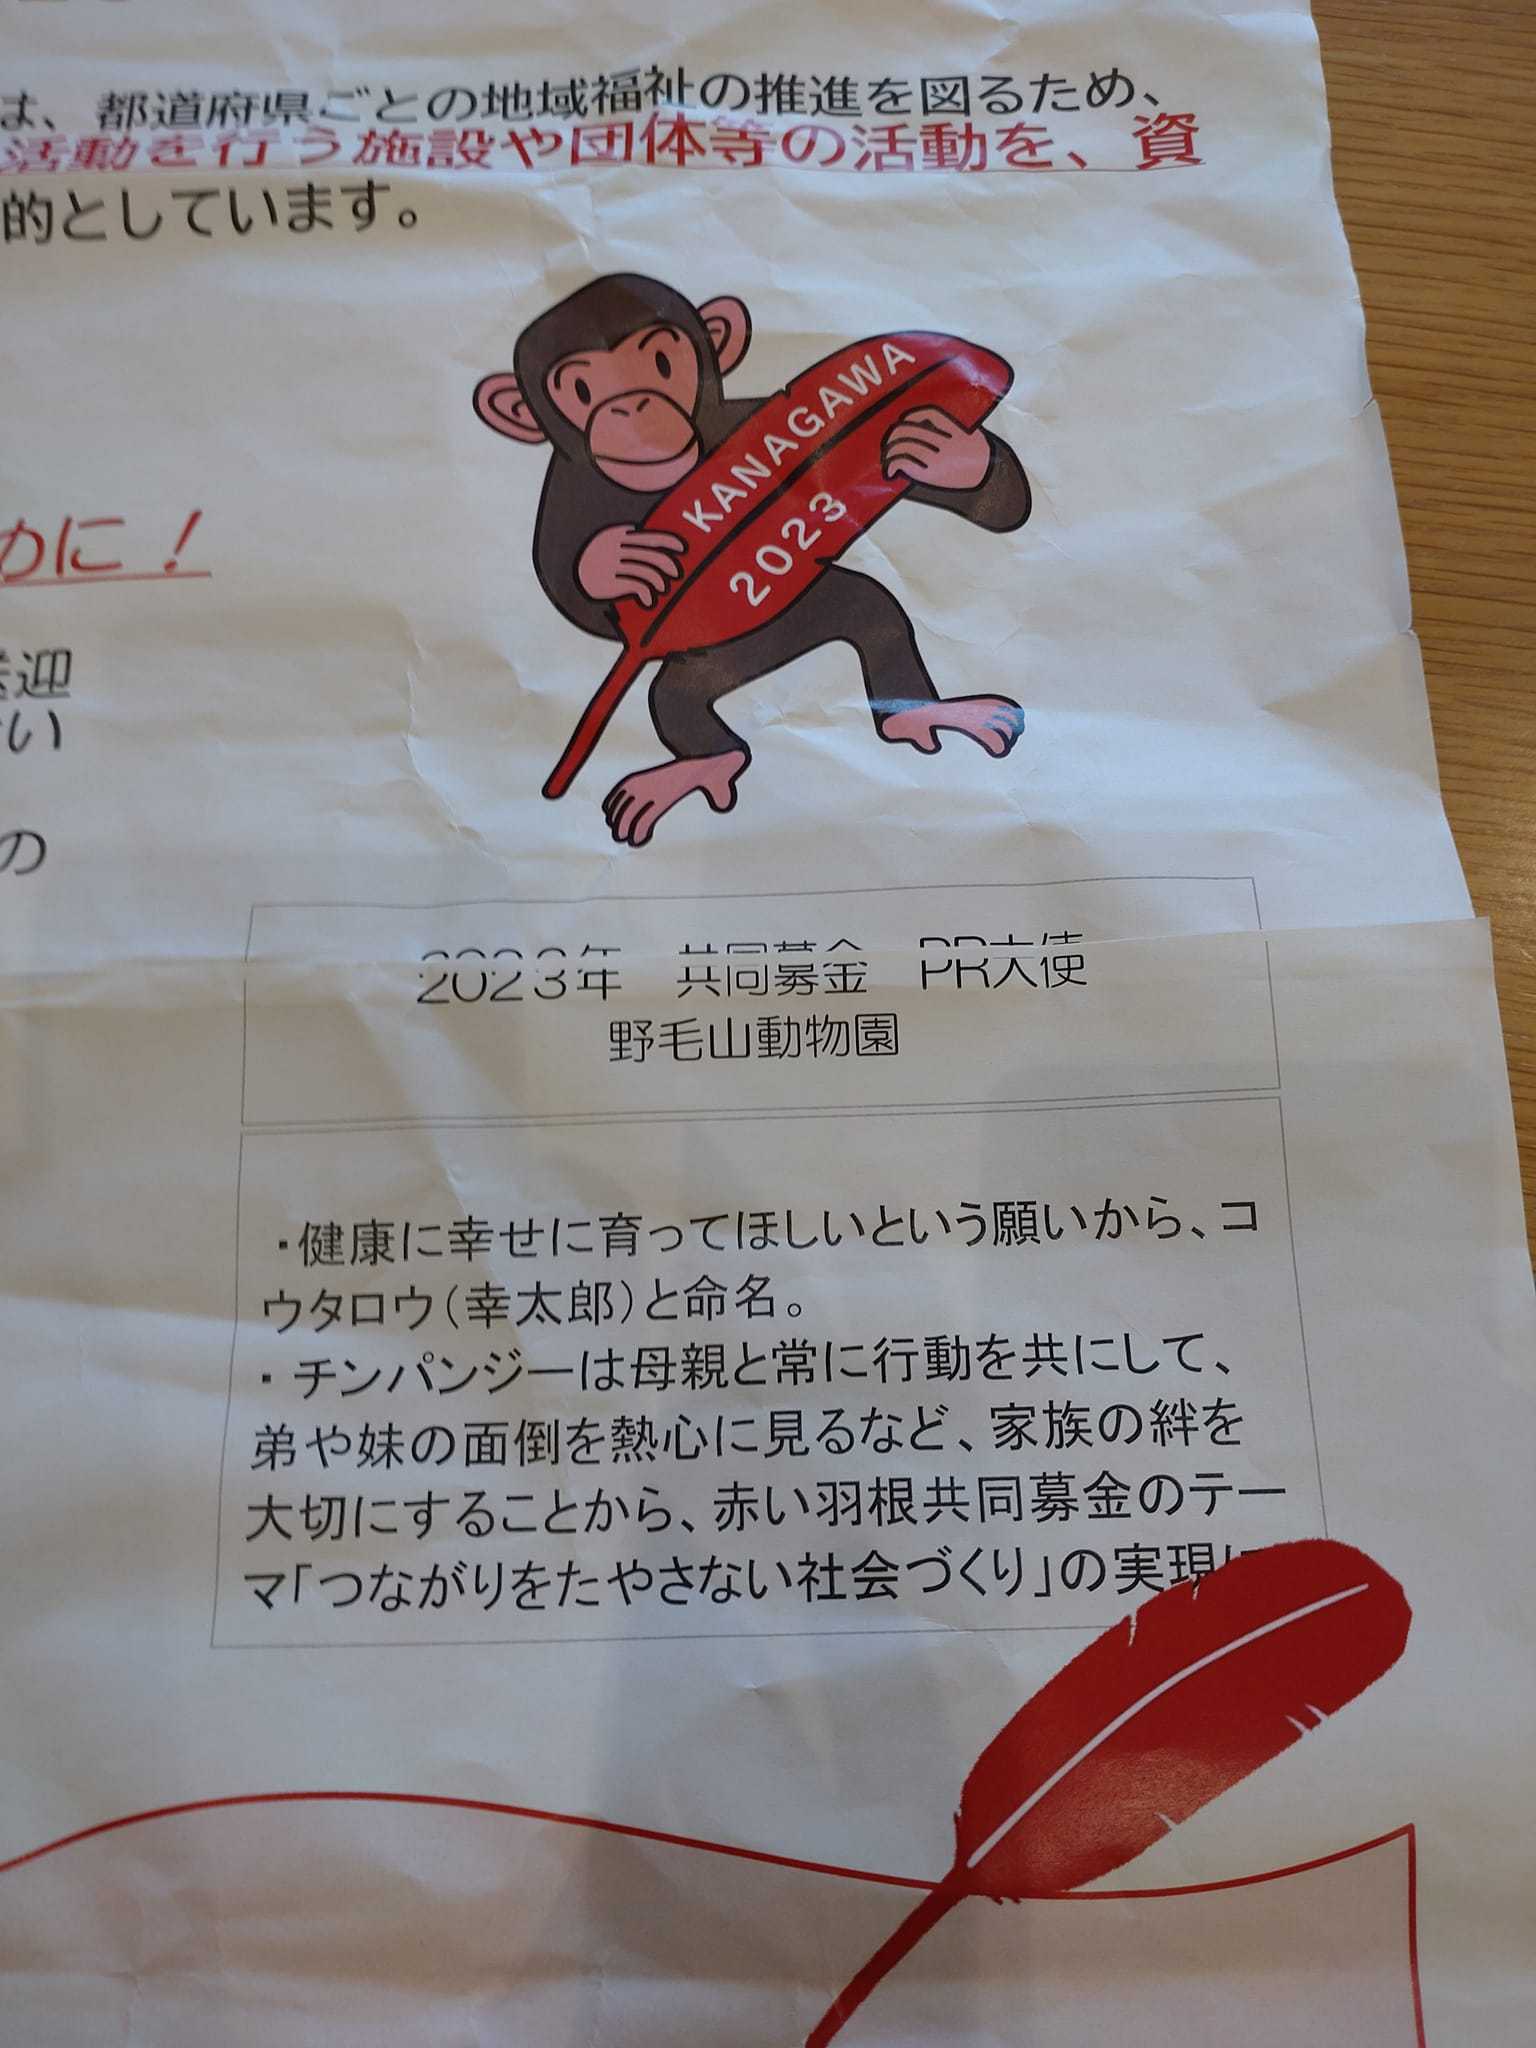 は、都道府県ごとの地域福祉の推進を図るため、
活動を行う施設や団体等の活動を、資
的としています。
KANAGAWA
2023
めに！
迎
い
の
2023年 共同募金 PR大使
野毛山動物園
・健康に幸せに育ってほしいという願いから、コ
ウタロウ(幸太郎)と命名。
・チンパンジーは母親と常に行動を共にして、
弟や妹の面倒を熱心に見るなど、家族の絆を
大切にすることから、赤い羽根共同募金のテー
マ「つながりをたやさない社会づくり」の実現に